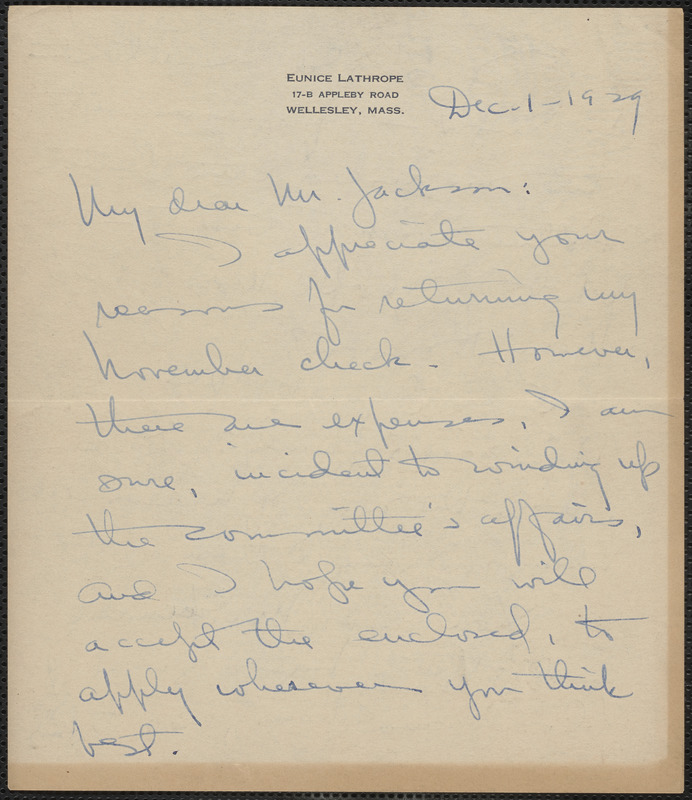 EUNICE LATHROPE
17-B APPLEBY ROAD
WELLESLEY, MASS.
Dec-1-1929
My dear Mr. Jackson:
I appreciate your
reasons for returning my
November check. However,
there are expenses, I am
sure, incident to winding up
the committee's affairs,
and I hope you will
accept the enclosed, to
apply wherever you think
best.